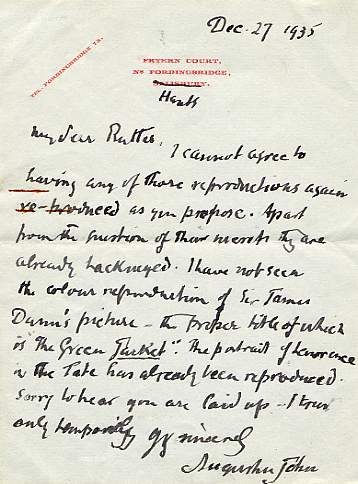 Dec. 27 1935
TEL. FORDINGBRIDGE
FRYERN COURT,
Nr FORDINGBRIDGE,
SALISBURY.
Hants
My dear Rutter,
I cannot agree to
having any of those reproductions again
re-produced as you propose. Apart
from the question of their merits they are
already hackneyed. I have not seen
the colour reproduction of Sir James
Dunn's picture – the proper title of which
is "The Green Jacket". The portrait of
in the Tate has already been reproduced.
Sorry to hear you are laid up – I trust
only temporarily
sincerely
Augustus John